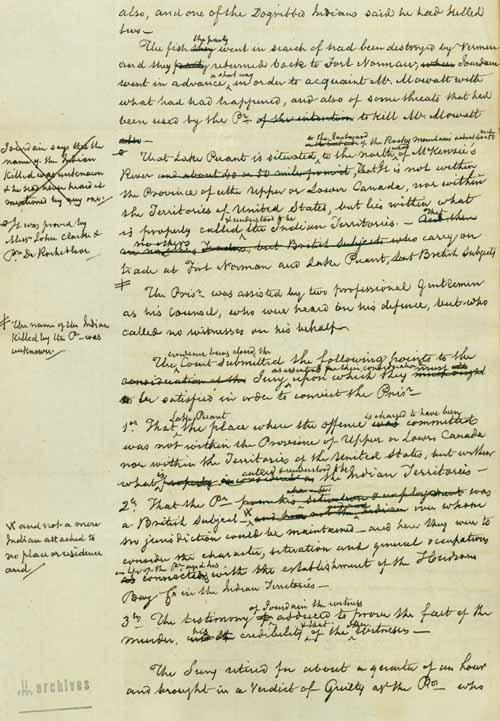 also, and one of the Dogribbed Indians said he had killed
two —
The fish they the party went in search of had been destroyed by Vermin
and they party returned back to Fort Norman, when Jourdain
went in advance, a short way in order to acquaint Mr. Mowatt with
what had happened, and also of some threats that had
been used by the Pr. of the intention to kill Mr. Mowatt
also —
That Lake Puant is situated, to the north of McKenzie's
River and about 40 or 50 miles from it, That it is not within
the Province of either Upper or Lower Canada, nor within
the Territories of United States, but lies within what
is properly called & understood to be the Indian Territories. — And
no others but British Subjects who carry on
trade at Fort Norman and Lake Puant, but British Subjects
The Prisr. was assisted by two professional Gentlemen
as his Counsel, who were heard on his defence, but who
called no witnesses on his behalf —
The evidence being closed, the Court submitted the following points to the
consideration of the Jury, as essential for their consideration upon which they must ought
to be satisfied in order to convict the Prisr.
1st That Lake Puant the place where the offence was is charged to have been committed
was not within the Province of Upper or Lower Canada
nor within the Territories of the United States, but within
what is called & understood the Indian Territories —
2d. That the Pr. from his situation & employment character was
a British Subject and over whom
no jurisdiction could be maintained — and here they were to
consider the character, situation and general occupations
life of the Pr. and his as connected with the establishment of the Hudsons
Bay Cy. in the Indian Territories —
3dy. The testimony of Jourdain the witness adduced to prove the fact of the
murder, his credibility & that of the Witnesses —
The Jury retired for about a quarter of an hour
and brought in a Verdict of Guilty agt. the Pr. who
Jourdain says that the
name of the Indian
killed was unknown
& he had never heard it
mentioned by any one
It was proved by
Messrs. John Clarke &
Pre. De Rocheblave
The name of the Indian
killed by the Pr. was
unknown
X and not a mere
Indian attached to
no place or residence
and
archives